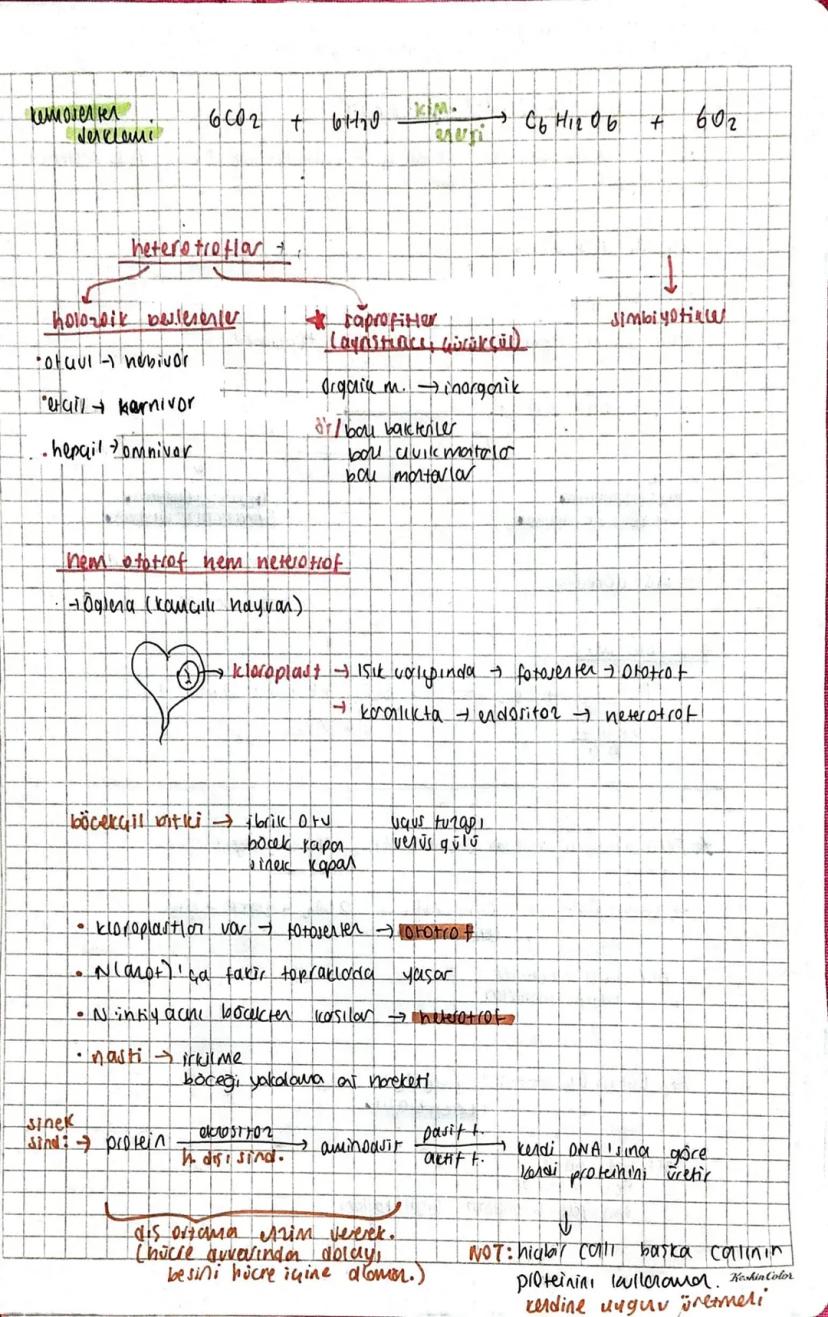 kemosentez denklemi
6CO2 + 6H2O kim. enerji → C6H12O6 + 6O2
heterotroflar →
holozoik beslenenler
• otçul → hebivor
• etçil → karnivor
• hepçil → omnivor
★ saprofitler
(ayrıştırıcı, çürükçül)
organik m. → inorganik
ör/ bazı bakteriler
bazı cıvık mantarlar
bazı mantarlar
↓
simbiyotikler
hem ototrof hem heterotrof
→ Öglena (kamçılı hayvan)
→ kloroplast → ışık varlığında → fotosentez → ototrof
→ karanlıkta → endositoz → heterotrof
böcekçil bitki → ibrik otu
böcek kapan
sinek kapan
venüs gülü
• kloroplastlar var → fotosentez → ototrof
• N(azot)'ça fakir topraklarda yaşar
• N ihtiyacını böcekten karşılar → heterotrof
• nasti → irkilme
böceği yakalama hareketi
sinek
sindi: → protein ekzositoz h. dışı sind. → aminoasit pasif t. aktif t. → kendi DNA'sına göre
kendi proteinini üretir
dış ortama enzim vererek.
(hücre duvarından dolayı
besini hücre içine alamaz.)
↓
NOT: hiçbir canlı başka canlının
proteinini kullanamaz.
kendine uygun üretmeli
KeskinColor